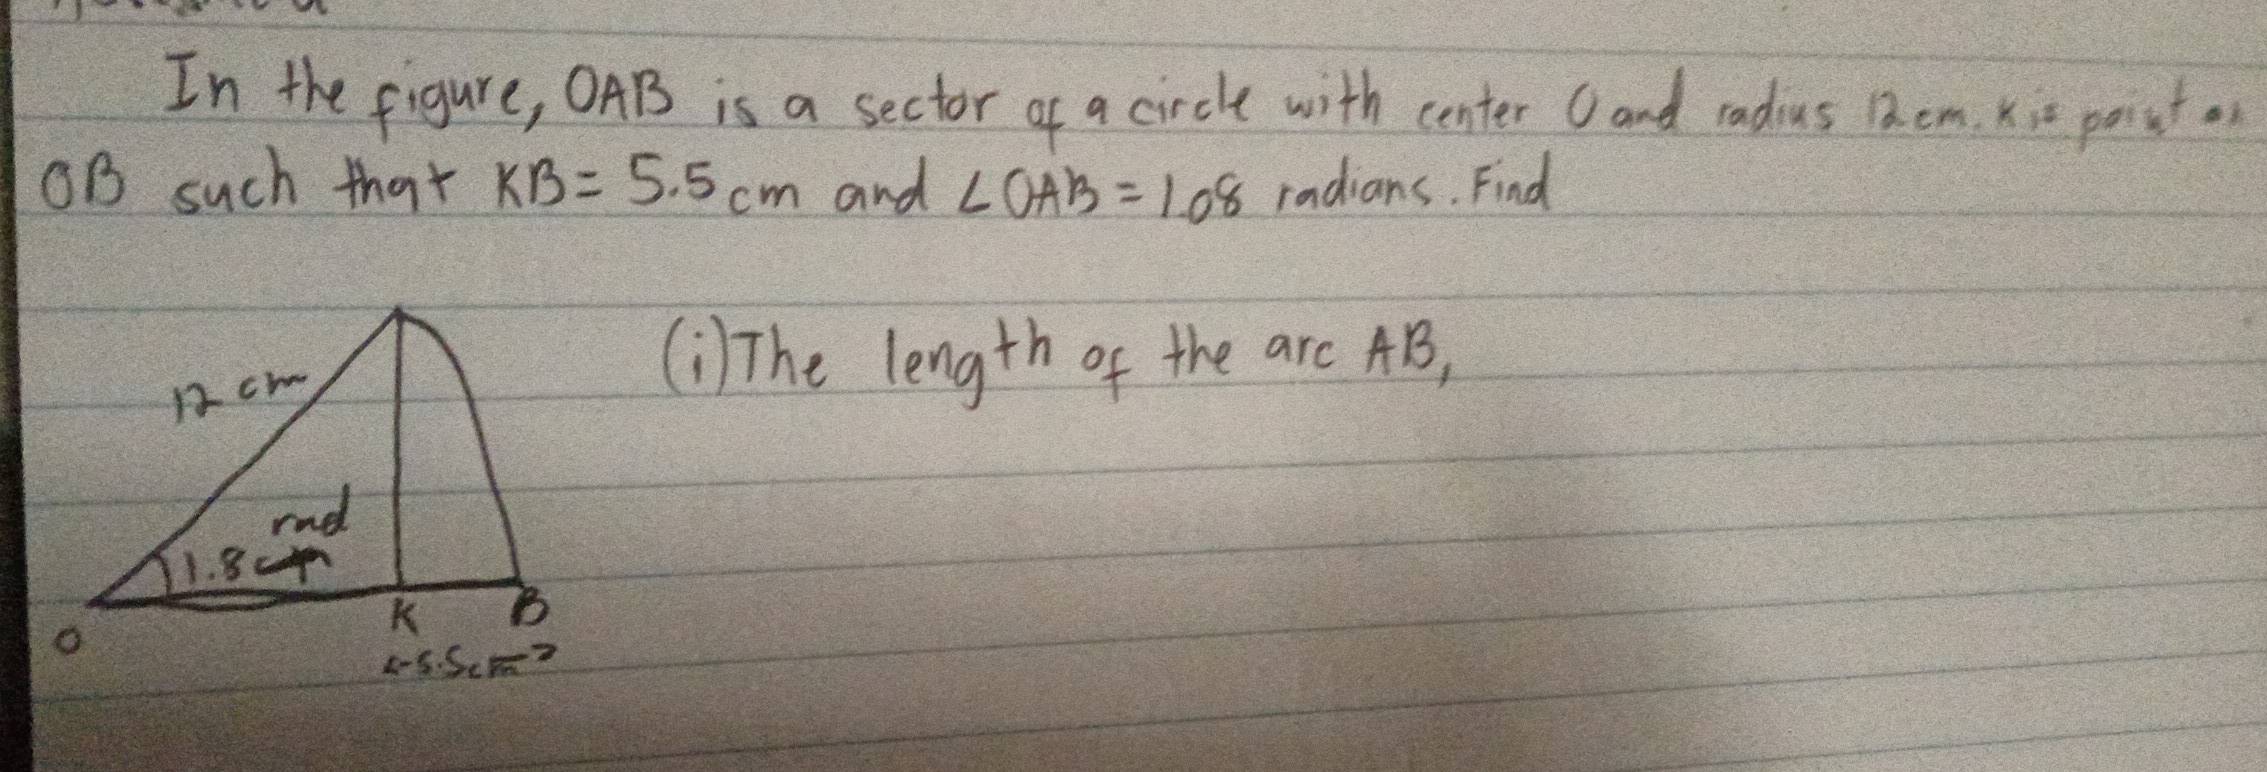 In the figure, OAB is a sector of a circle with center O and radius 12 cm. K is point on
OB such that KB = 5.5 cm and ∠OAB = 1.08 radians. Find
(i) The length of the arc AB,
12 cm
rad
1.8 cm
K B
O
←5.5cm→